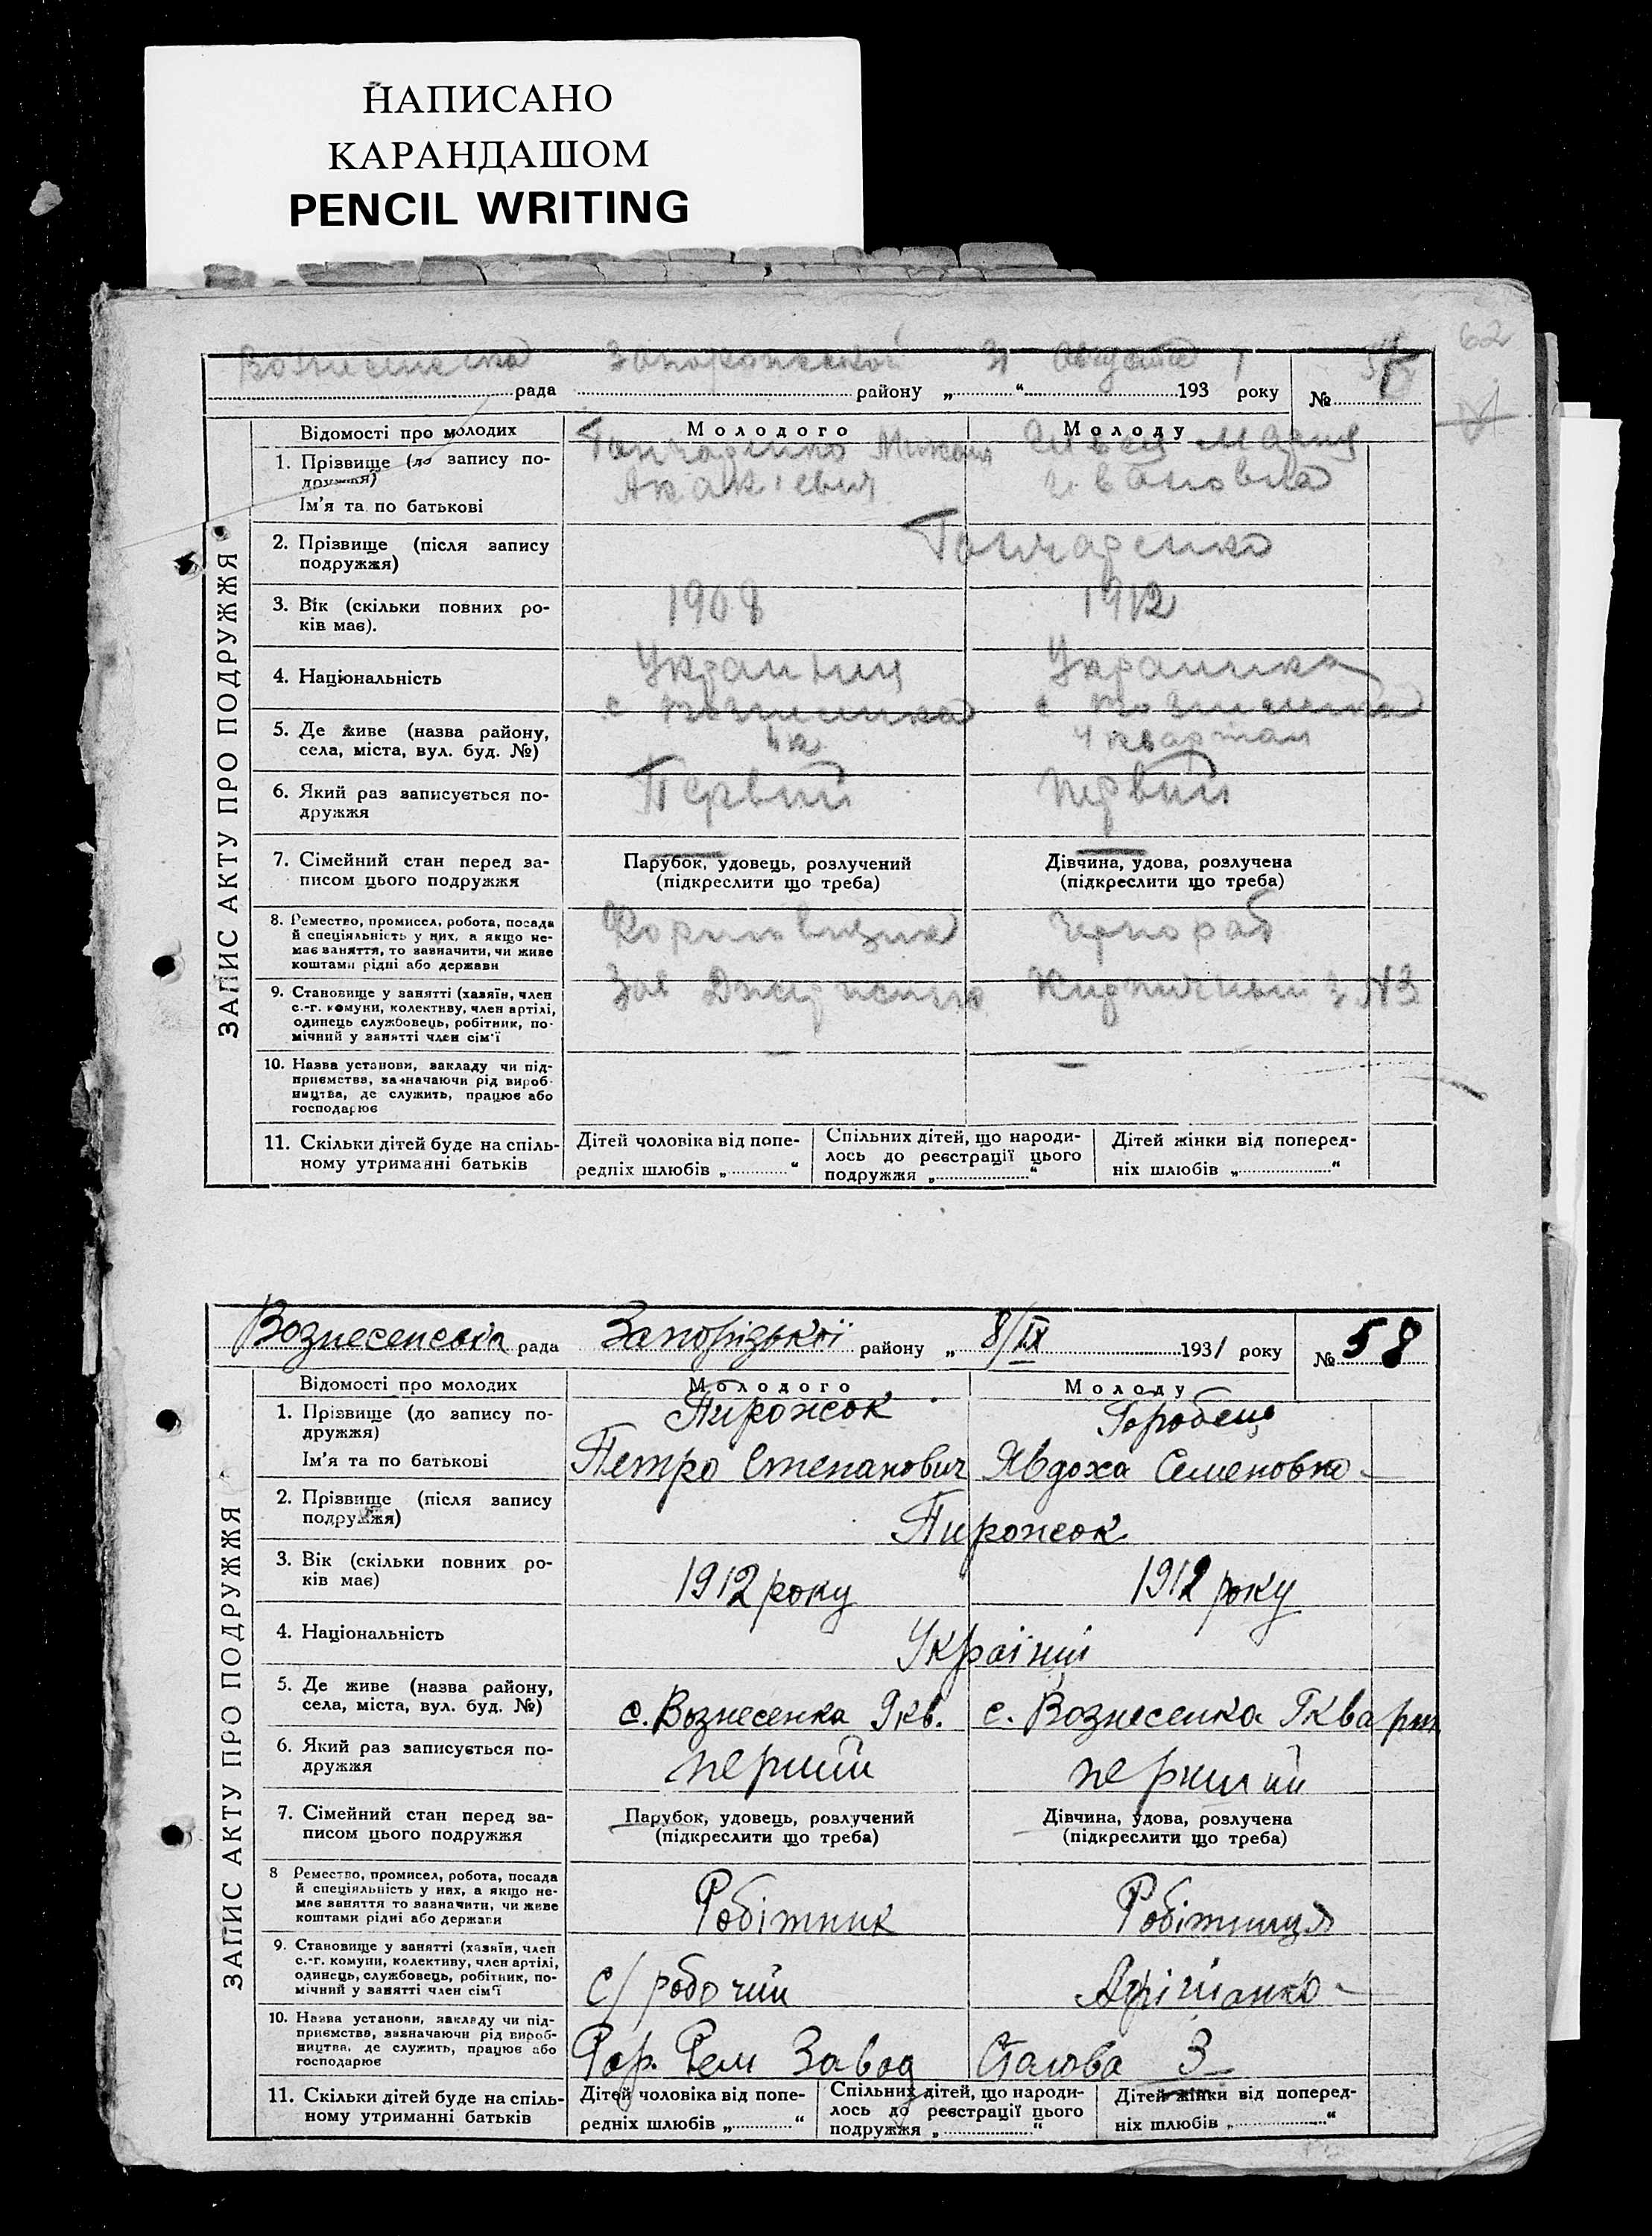 НАПИСАНО
КАРАНДАШОМ
PENCIL WRITING
62
Вознесенска рада Запорожской району „31“ Августа 1931 року №
ЗАПИС АКТУ ПРО ПОДРУЖЖЯ
Відомості про молодих Молодого Молоду
1. Прізвище (до запису по-
дружжя)
Ім'я та по батькові
Гончаренко Михаил
Акакіевич
Швец Мария
Ивановна
2. Прізвище (після запису
подружжя)
Гончаренко
3. Вік (скільки повних ро-
ків має).
1908 1912
4. Національність
Украинец Украинка
5. Де живе (назва району,
села, міста, вул. буд. №)
с Вознесенка
4 к
с Вознесенка
4 квартал
6. Який раз записується по-
дружжя
Первий первий
7. Сімейний стан перед за-
писом цього подружжя
Парубок, удовець, розлучений
(підкреслити що треба)
Дівчина, удова, розлучена
(підкреслити що треба)
8. Ремество, промисел, робота, посада
й спеціяльність у них, а якщо не-
має заняття, то зазначити, чи живе
коштами рідні або держави
Формовщик Чернораб
9. Становище у занятті (хазяїн, член
с.-г. комуни, колективу, член артілі,
одинець службовець, робітник, по-
мічний у занятті член сім'ї
Зав Кирпичный з №3
10. Назва установи, закладу чи під-
приємства, зазначаючи рід вироб-
ництва, де служить, працює або
господарює
11. Скільки дітей буде на спіль-
ному утриманні батьків
Дітей чоловіка від попе-
редніх шлюбів „............“
Спільних дітей, що народи-
лось до реєстрації цього
подружжя „............“
Дітей жінки від поперед-
ніх шлюбів „............“
Вознесенська рада Запорізької району „ 8/IX 1931 року № 58
ЗАПИС АКТУ ПРО ПОДРУЖЖЯ
Відомості про молодих Молодого Молоду
1. Прізвище (до запису по-
дружжя)
Ім'я та по батькові
Пирожок
Петро Степанович
Горобець
Явдоха Семеновна
2. Прізвище (після запису
подружжя)
Пирожок
3. Вік (скільки повних ро-
ків має)
1912 року 1912 року
4. Національність
Українці
5. Де живе (назва району,
села, міста, вул. буд. №)
с. Вознесенка 9 кв. с. Вознесенка 9 кварт
6. Який раз записується по-
дружжя
перший перший
7. Сімейний стан перед за-
писом цього подружжя
Парубок, удовець, розлучений
(підкреслити що треба)
Дівчина, удова, розлучена
(підкреслити що треба)
8 Ремество, промисел, робота, посада
й спеціяльність у них, а якщо не-
має заняття то зазначити, чи живе
коштами рідні або держави
Робітник Робітниця
9. Становище у занятті (хазяїн, член
с.-г. комуни, колективу, член артілі,
одинець, службовець, робітник, по-
мічний у занятті член сім'ї
С/робочий
10. Назва установи, закладу чи під-
приємства, зазначаючи рід вироб-
ництва, де служить, працює або
господарює
Рем Завод Сталова 3
11. Скільки дітей буде на спіль-
ному утриманні батьків
Дітей чоловіка від попе-
редніх шлюбів „............“
Спільних дітей, що народи-
лось до реєстрації цього
подружжя „............“
Дітей жінки від поперед-
ніх шлюбів „............“